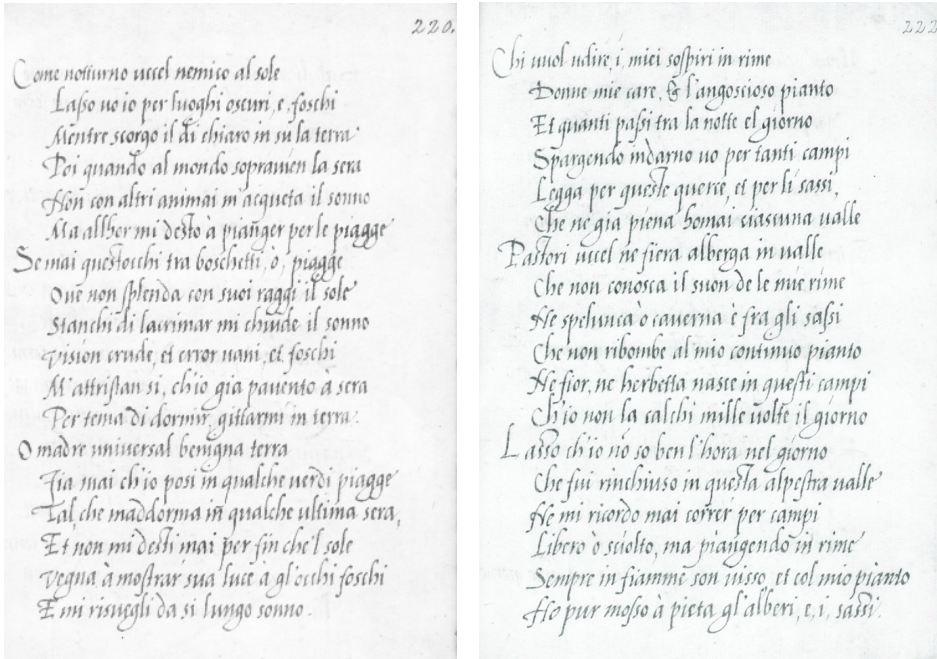 220.
Come notturno uccel nemico al sole
Lasso vo io per luoghi oscuri, e, foschi
Mentre scorgo il di chiaro in su la terra
Poi quando al mondo sopravien la sera
Non con altri animai m'acqueta il sonno
Ma allhor mi desto à pianger per le piagge
Se mai quest'occhi tra boschetti, ò, piagge
Ove non splenda con suoi raggi il sole
Stanchi di lacrimar mi chiude il sonno
Vision crude, et error vani, et foschi
M'attristan si, ch'io gia pavento a sera
Per tema di dormir, gittarmi in terra.
O madre universal benigna terra
Fia mai ch'io posi in qualche verdi piagge
Tal che m'addorma in qualche ultima sera,
Et non mi desti mai per fin che'l sole
Vegna à mostrar sua luce a gl'occhi foschi
E mi risvegli da si lungo sonno.
222
Chi vuol udire, i, miei sospiri in rime
Donne mie care, & l'angoscioso pianto
Et quanti passi tra la notte el giorno
Spargendo indarno vo per tanti campi
Legga per queste querce, et per li sassi,
Che ne gia piena homai ciascuna valle
Pastori uccel ne fiera alberga in valle
Che non conosca il suon de le mie rime
Ne spelunca ò caverna è fra gli sassi
Che non ribombe al mio continuo pianto
Ne fior, ne herbetta nasce in questi campi
Ch'io non la calchi mille volte il giorno
Lasso ch'io nō so ben l'hora nel giorno
Che fui rinchiuso in questa alpestra valle
Ne mi ricordo mai correr per campi
Libero ò sciolto, ma piangendo in rime
Sempre in fiamme son visso, et col mio pianto
Ho pur mosso à pieta gl'alberi, e, i, sassi.